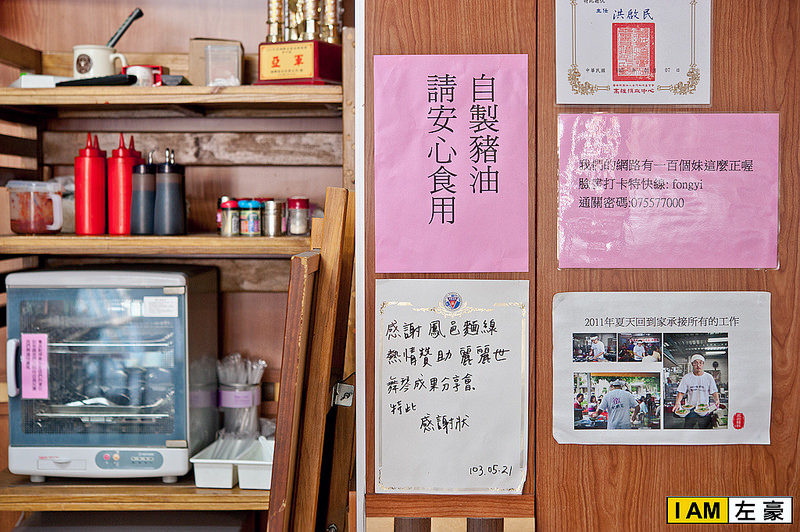 亞軍
洪啟民
中華民國
高雄憲政中心
自製豬油
請安心食用
我們的網路有一百個妹這麼正喔
臉書打卡特快線: fongyi
通關密碼:075577000
感謝 鳳邑麵線
熱情贊助 麗麗世
舞琴成果分享會
特此
感謝狀
103.05.21
2011年夏天回到家承接所有的工作
I AM 左豪